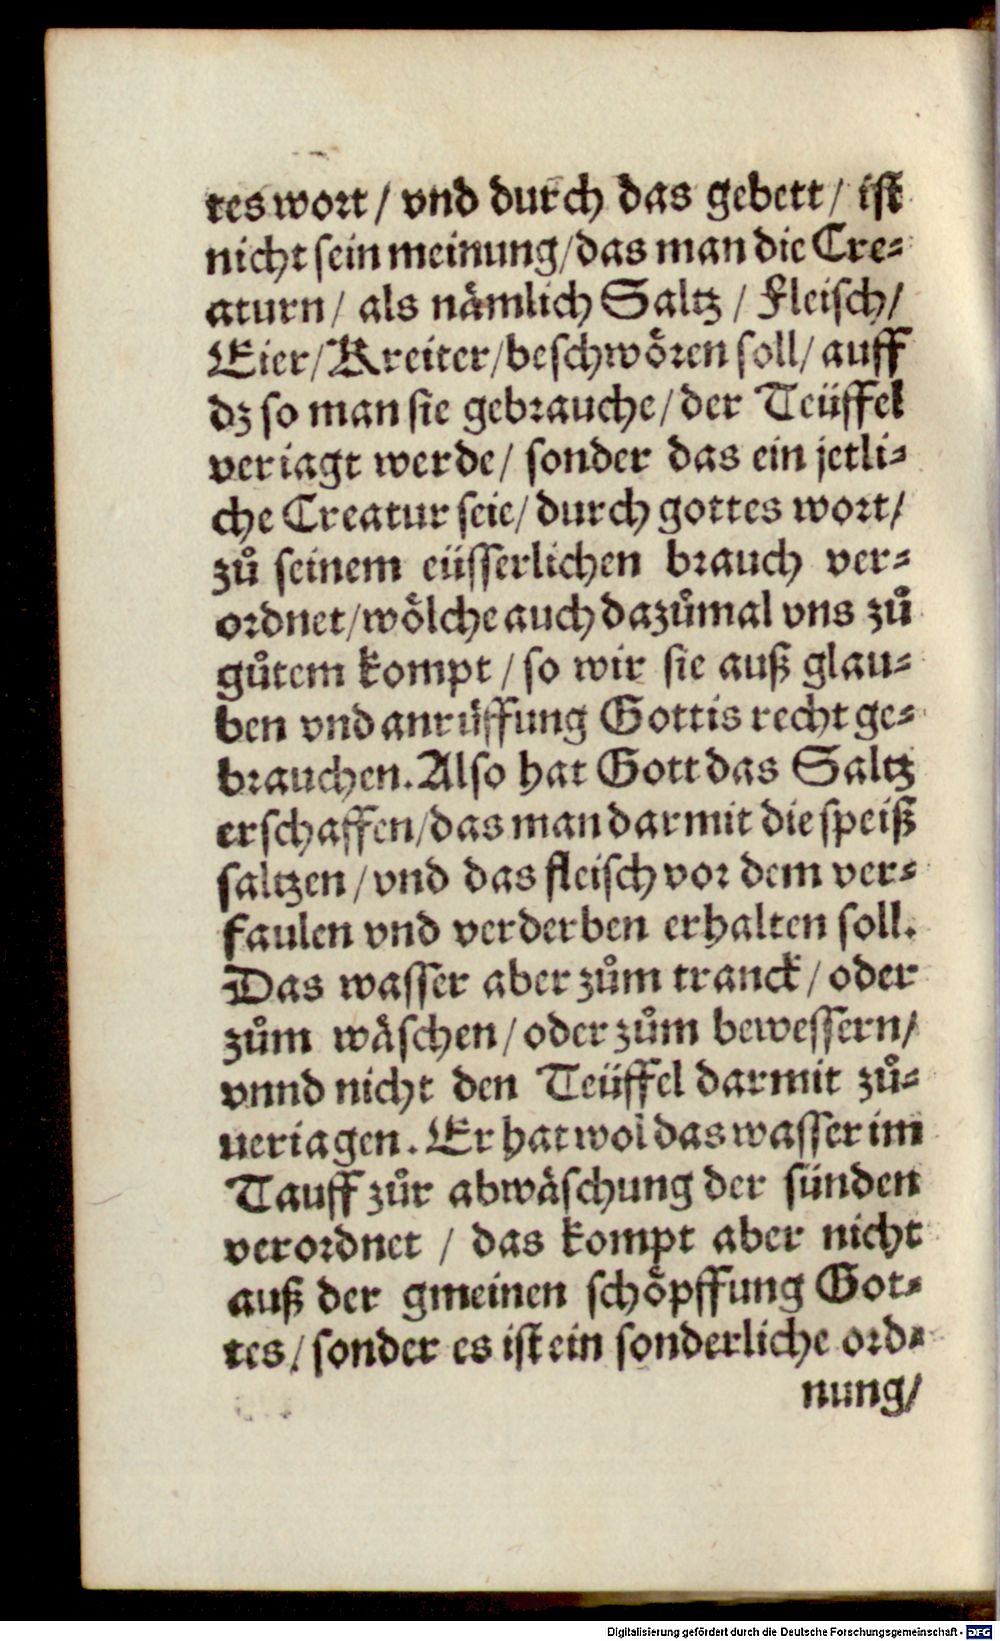 tes wort / vnd durch das gebett / ist
nicht sein meinung / das man die Cre-
aturn / als nämlich Saltz / Fleisch /
Eier / Kreiter / beschwören soll / auff
dz so man sie gebrauche / der Teüffel
veriagt werde / sonder das ein jetli-
che Creatur seie / durch gottes wort /
zů seinem eüsserlichen brauch ver-
ordnet / wölche auch dazůmal vns zů
gůtem kompt / so wir sie auß glau-
ben vnd anrüffung Gottis recht ge-
brauchen. Also hat Gott das Saltz
erschaffen / das man darmit die speiß
saltzen / vnd das fleisch vor dem ver-
faulen vnd verderben erhalten soll.
Das wasser aber zům tranck / oder
zům wäschen / oder zům bewessern /
vnnd nicht den Teüffel darmit zů-
ueriagen. Er hat wol das wasser im
Tauff zůr abwäschung der sünden
verordnet / das kompt aber nicht
auß der gmeinen schöpffung Got-
tes / sonder es ist ein sonderliche ord-
nung /
Digitalisierung gefördert durch die Deutsche Forschungsgemeinschaft - DFG